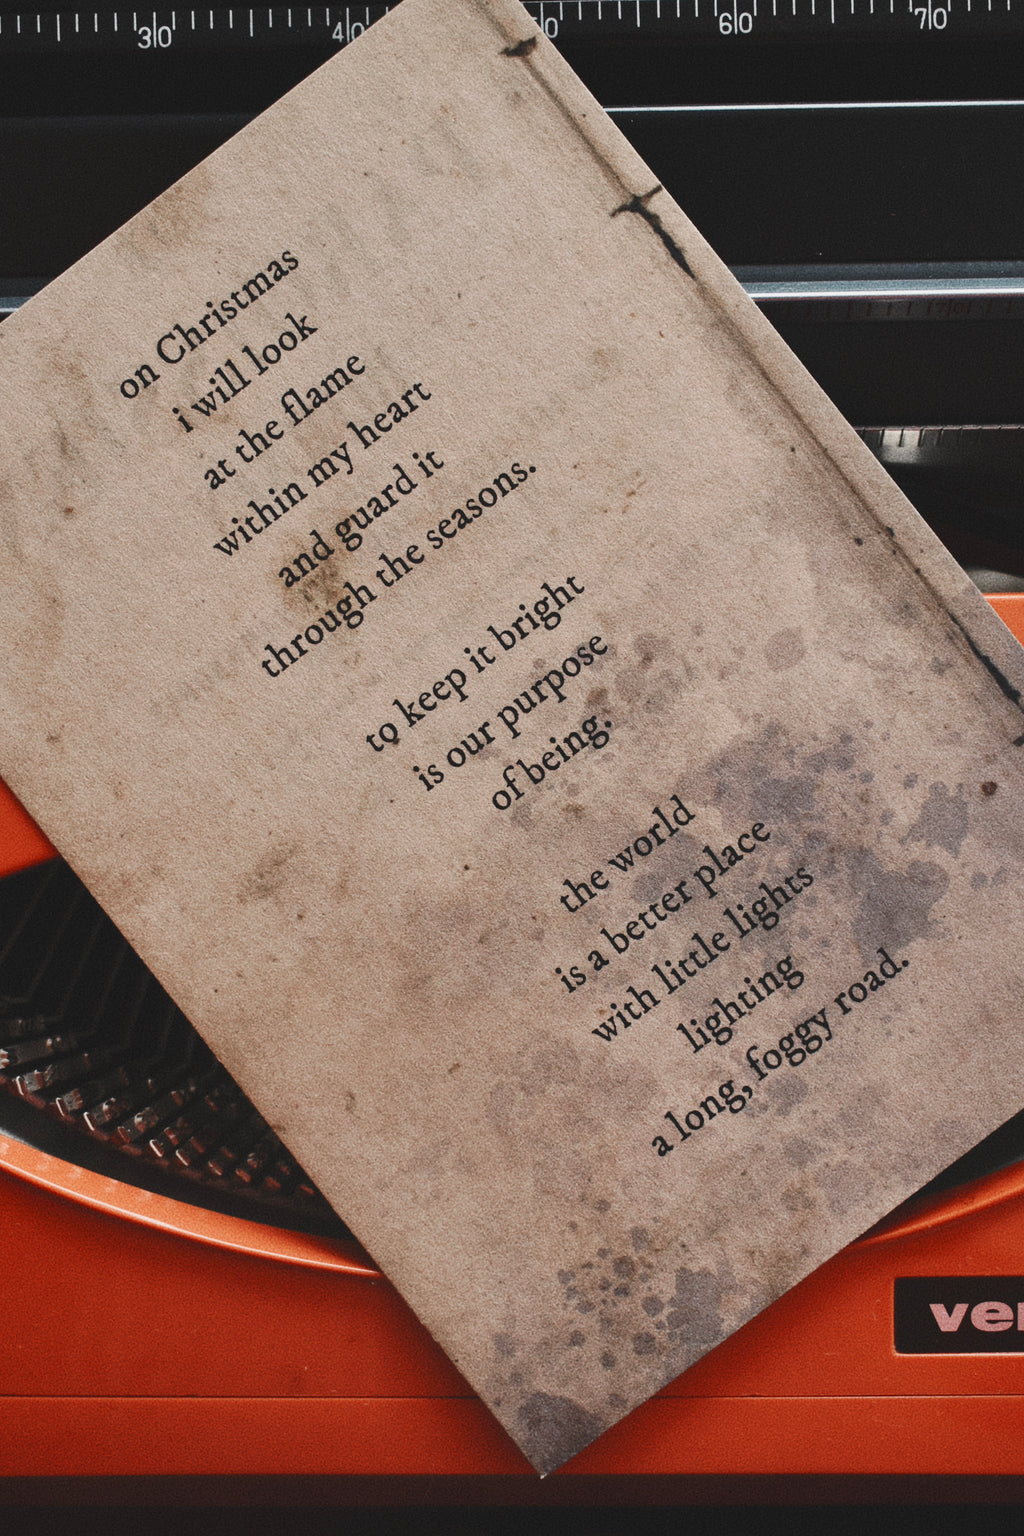 30 40 50 60 70
on Christmas
i will look
at the flame
within my heart
and guard it
through the seasons.
to keep it bright
is our purpose
of being.
the world
is a better place
with little lights
lighting
a long, foggy road.
ver